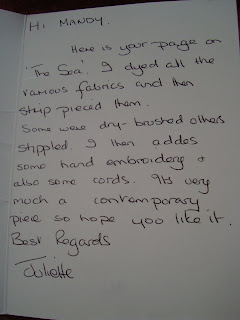 Hi MANDY.
Here is your page on
'The Sea'. I dyed all the
various fabrics and then
strip pieced them.
Some were dry-brushed others
stippled. I then addes
some hand embroidery &
also some cords. Its very
much a contemporary
piece so hope yoo like it.
Best Regards
Juliette